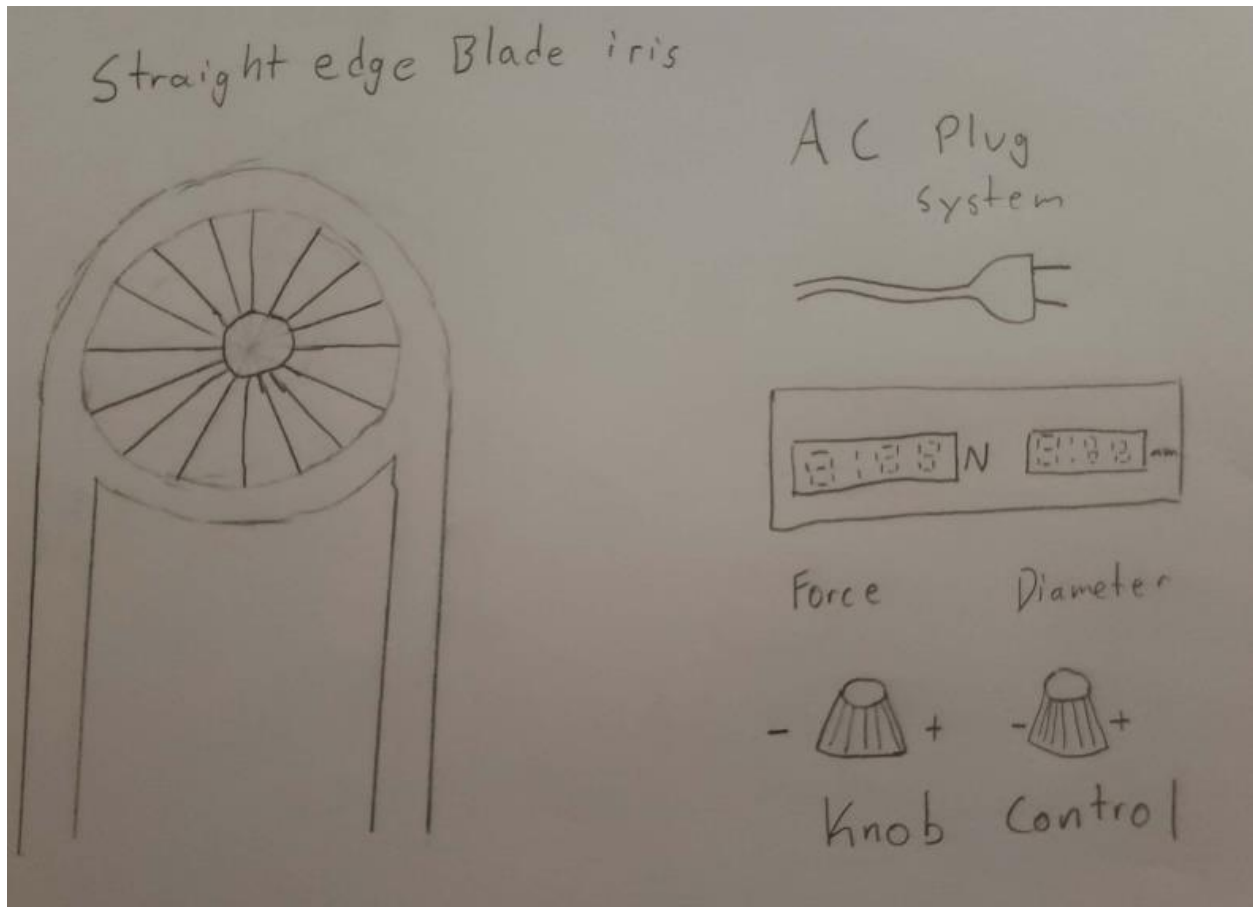 Straight edge Blade iris
AC Plug
system
N mm
Force Diameter
- + - +
Knob Control